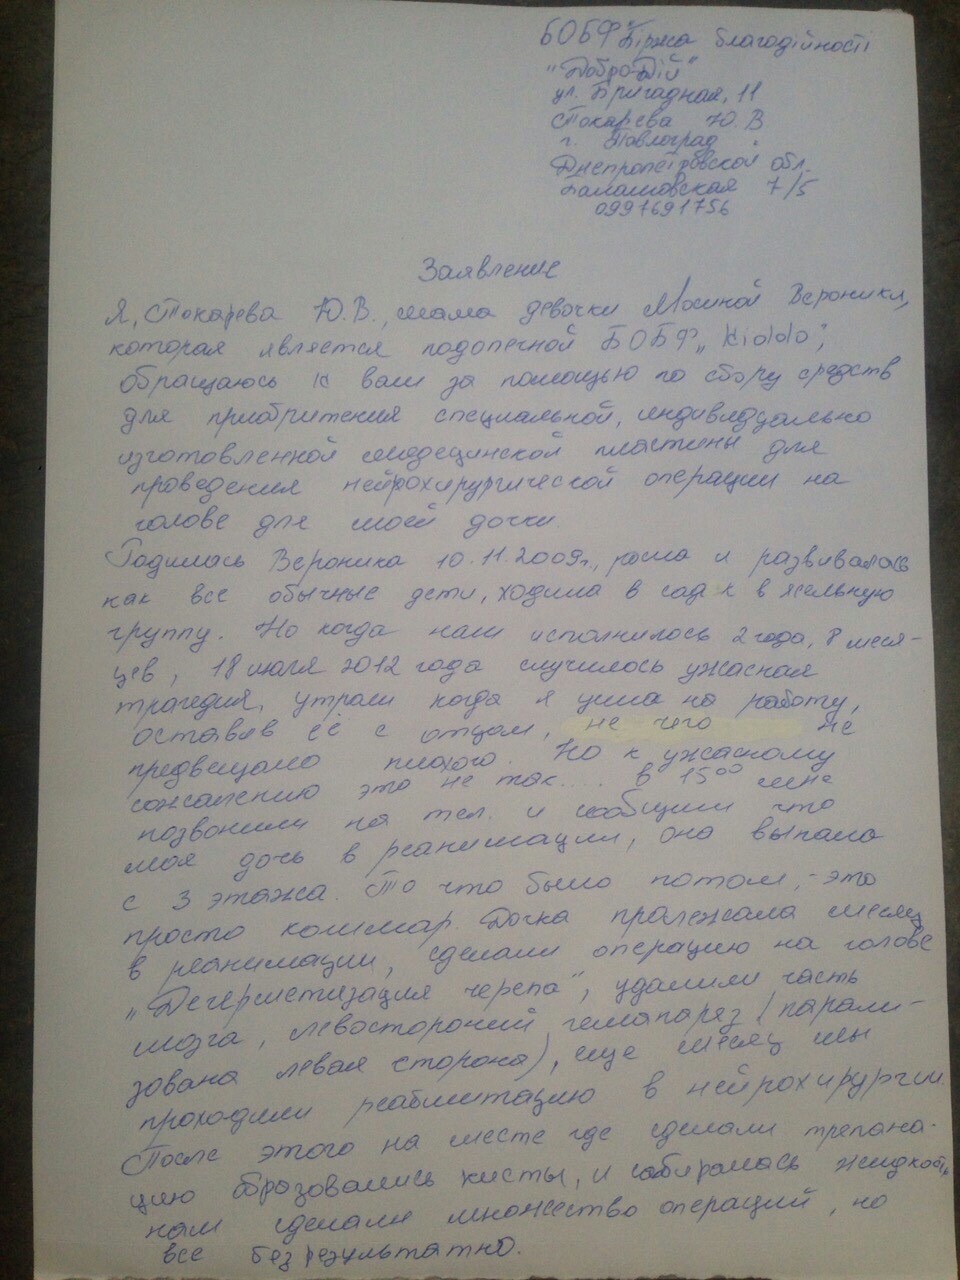 БОБФ "Біржа благодійності
"Добро-Дій"
ул. Бригадная, 11
Токарева Ю.В
г. Павлоград
Днепропетровской обл.
Балашовская 7/5
0997691756
Заявление
Я, Токарева Ю.В., мама девочки Мосиной Вероники,
которая является подопечной БОБФ „Kiddo",
обращаюсь к вам за помощью по сбору средств
для приобритения специальной, индивидуально
изготовленной медецинской пластины для
проведения нейрохирургической операции на
голове для моей дочки.
Родилась Вероника 10.11.2009г., росла и развивалась
как все обычные дети, ходила в сад в ясельную
группу. Но когда нам исполнилось 2 года, 8 меся-
цев, 18 июля 2012 года случилось ужасная
трагедия, утром когда я ушла на работу,
оставив её с отцом, не чего не
предвещало плохого. Но к ужасному
сожалению это не так.... в 15⁰⁰ мне
позвонили на тел. и сообщили что
моя дочь в реанимации, она выпала
с 3 этажа. То что было потом, - это
просто кошмар. Дочка пролежала месяц
в реанимации, сделали операцию на голове
„Дегерметизация черепа", удалили часть
мозга, левостороний гемапарез (парали-
зована левая сторона), еще месяц мы
проходили реабилитацию в нейрохирургии.
После этого на месте где сделали трепана-
цию образовались кисты, и собиралась жидкость,
нам сделали множество операций, но
все безрезультатно.